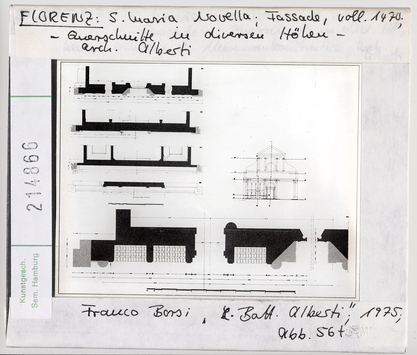 FLORENZ: S. Maria Novella; Fassade, voll. 1470;
- Querschnitte in diversen Höhen -
arch. Alberti
214866
Kunstgesch.
Sem. Hamburg
Franco Borsi, "L. Batt. Alberti"; 1975;
Abb. 56f.